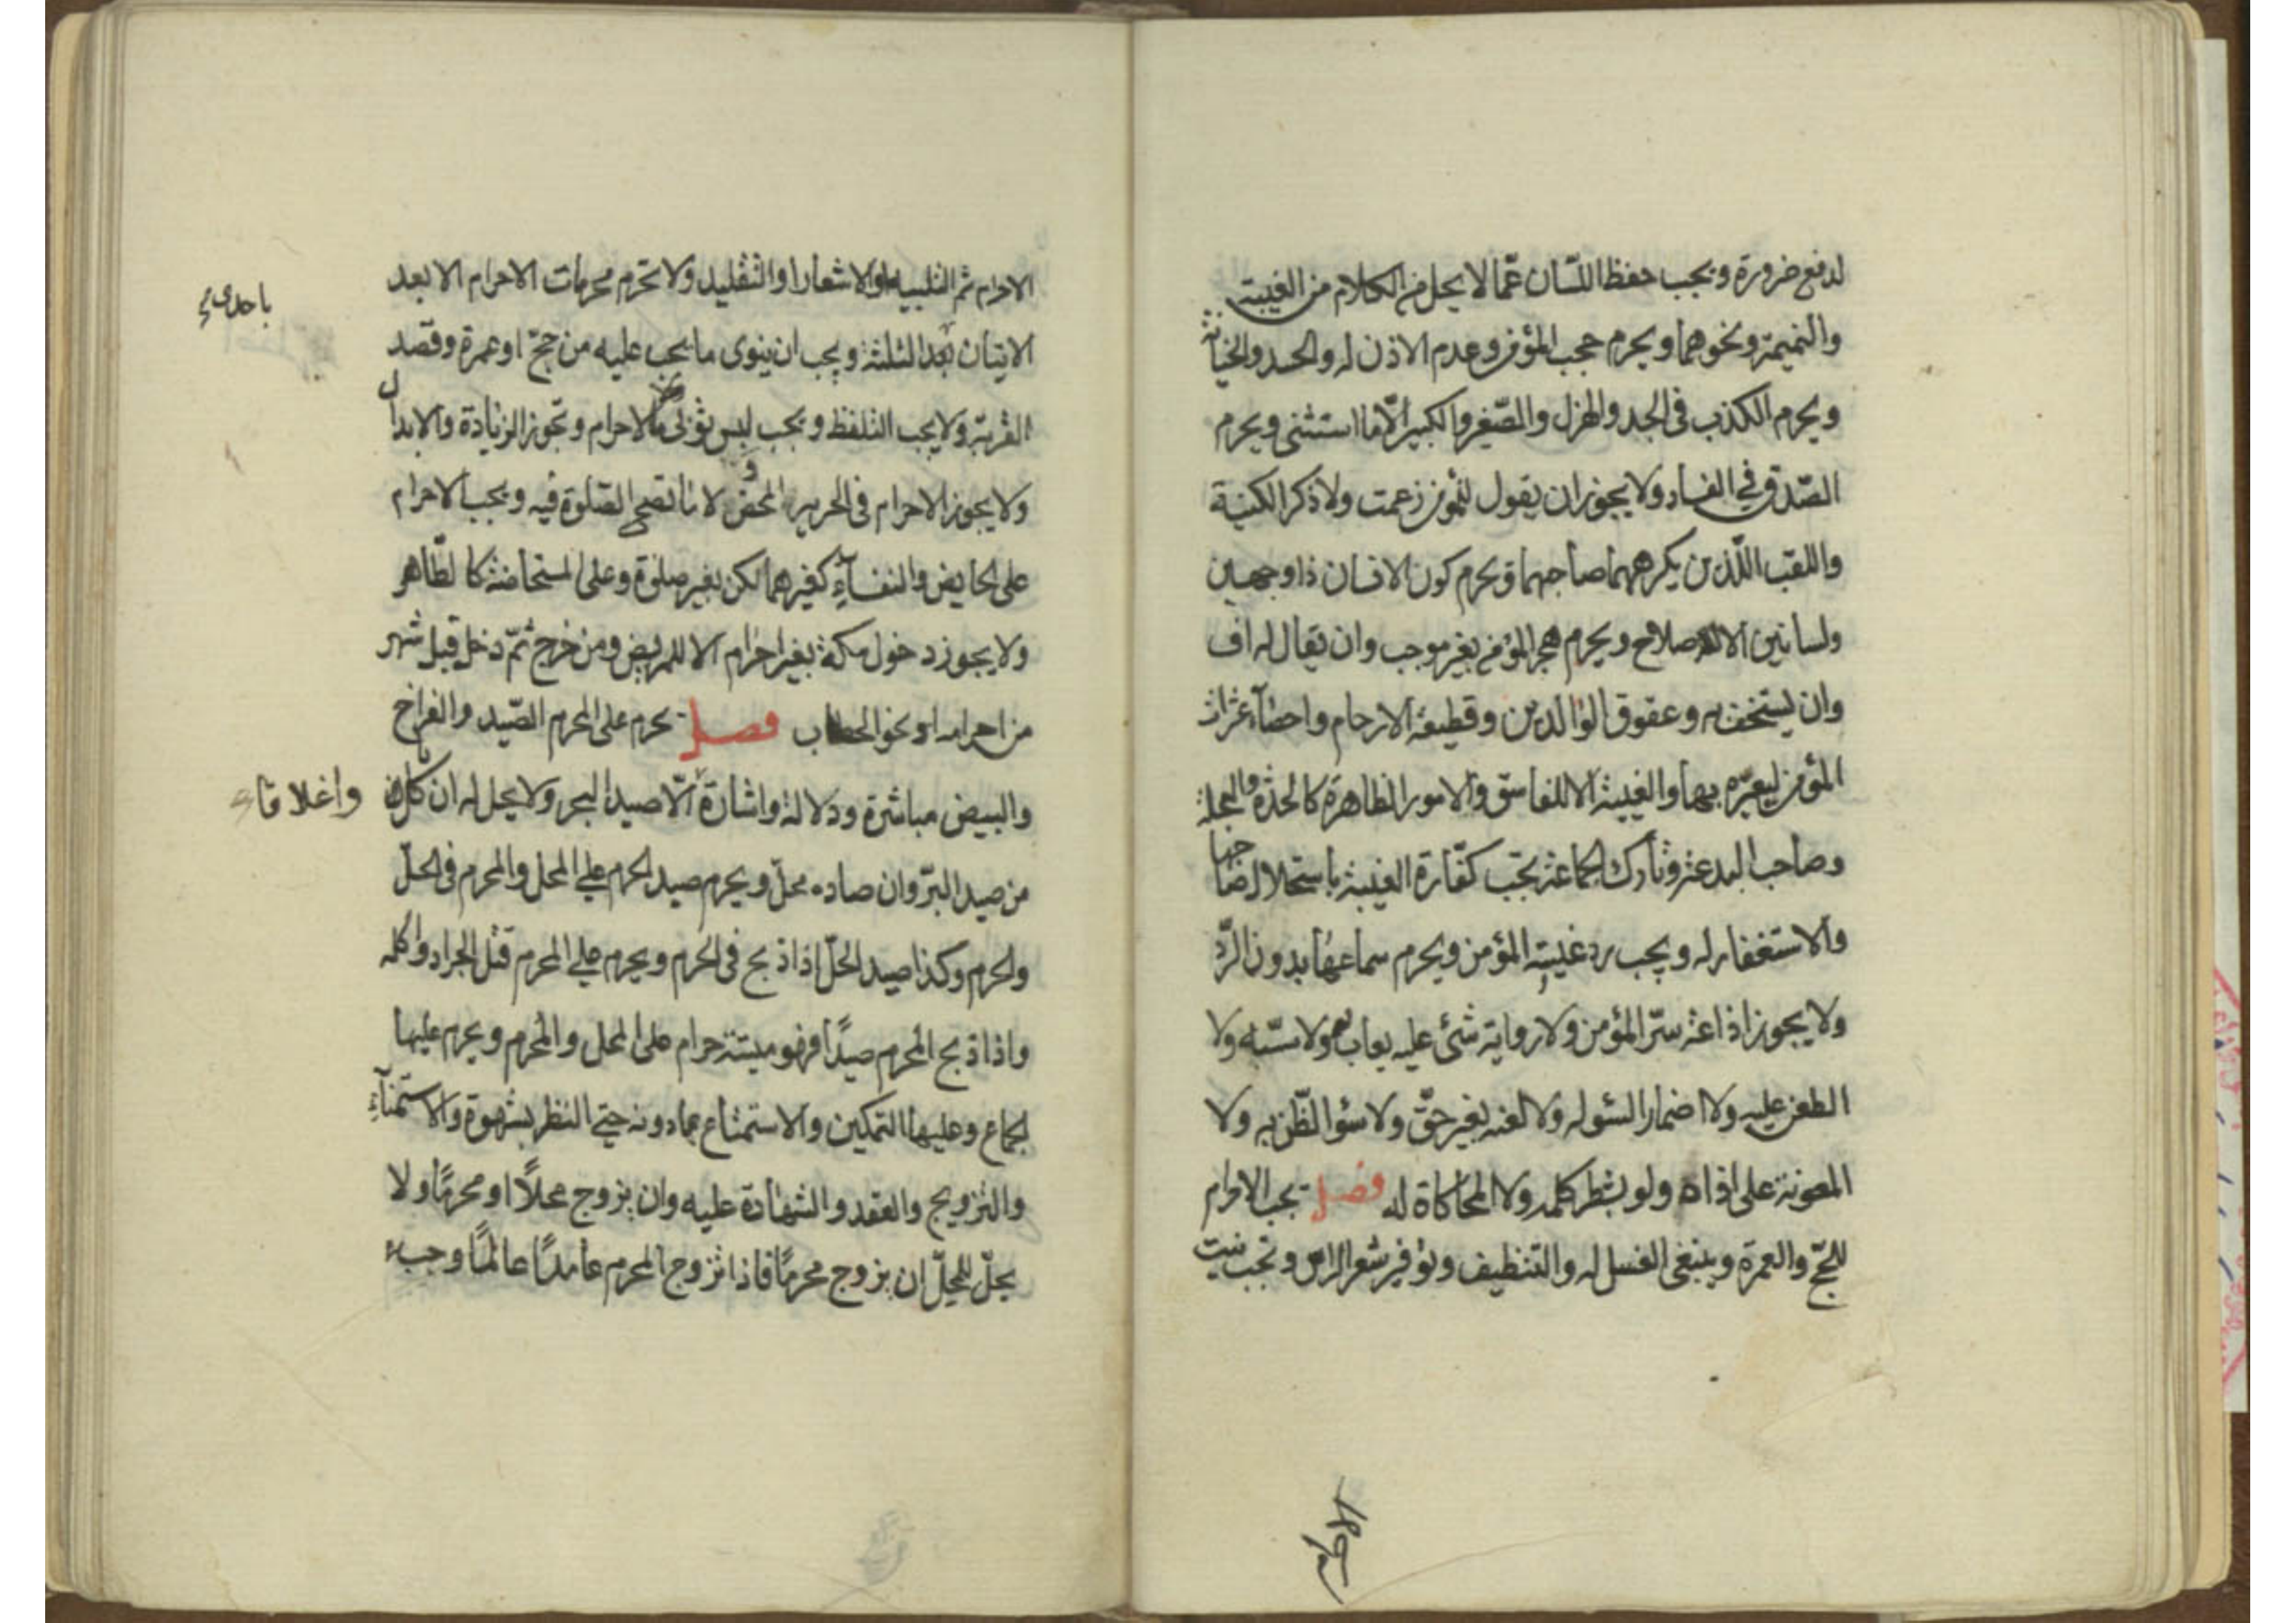 لدفع ضرورة ويجب حفظ اللسان عمّا لا يحل من الكلام من الغيبة
والنميمة ونحوهما ويحرم حجب المؤمن وعدم الاذن له والحسد والخيانة
ويحرم الكذب فى الجد والهزل والصّغير والكبير الّا ما استثنى ويحرم
الصّدق فى الفساد ولا يجوز ان يقول للمؤمن زعمت ولا ذكر الكنية
واللقب اللّذين يكرههما صاحبهما ويحرم كون الانسان ذا وجهين
ولسانين الا للاصلاح ويحرم هجر المؤمن بغير موجب وان يقال له اف
وان يستخف به وعقوق الوالدين وقطيعة الارحام واحصاء عثرات
المؤمن ليعيّره بها والغيبة الا للفاسق والامور الظاهرة كالحدّة والعجلة
وصاحب البدعة وتارك الجماعة تجب كفّارة الغيبة باستحلال صاحبها
والاستغفار له ويجب رد غيبة المؤمن ويحرم سماعها بدون الرّد
ولا يجوز اذاعة سرّ المؤمن ولا رواية شئ عليه يعاب به ولا سبّه ولا
الطعن عليه ولا اضمار السّوء له ولا لعنه بغير حقّ ولا سوء الظّن به ولا
المعونة على اذاه ولو بشطر كلمه ولا المحاكاة له فصل يجب الاحرام
للحجّ والعمرة وينبغى الغسل له والتنظيف وتوفير شعر الراس وتجب نيت
الاحرام ثم التلبيه او الاشعار او التقليد ولا تحرم محرمات الاحرام الا بعد
باحدى
الاتيان بعد الثلثة ويجب ان ينوى ما يجب عليه من حجّ او عمرة وقصد
القربة ولا يجب التلفظ ويجب لبس ثوبى الاحرام وتجوز الزيادة والابدال
ولا يجوز الاحرام فى الحرير المحض ولا ما لا تصح الصّلوة فيه ويجب الاحرام
على الحايض والنفساء كغيرهما لكن بغير صلوة وعلى المستحاضة كالطّاهر
ولا يجوز دخول مكة بغير احرام الا للمريض ومن خرج ثمّ دخل قبل شهر
من احرامه او نحو الحطاب فصل يحرم على المحرم الصّيد والفراخ
والبيض مباشرة ودلالة واشارة الّا صيد البحر ولا يحل له ان ياكل
واغلاقا
من صيد البرّ وان صاده محلّ ويحرم صيد الحرم على المحل والمحرم فى الحلّ
والحرم وكذا صيد الحلّ اذا ذبح فى الحرم ويحرم على المحرم قتل الجراد واكله
واذا ذبح المحرم صيدًا فهو ميتة حرام على المحل والمحرم ويحرم عليها
الجماع وعليها التمكين والاستمتاع بما دونه حتى النظر بشهوة والاستمناء
والتزويج والعقد والشهادة عليه وان يزوج محلًّا او محرمًا ولا
يحلّ للمحلّ ان يزوج محرمًا فاذا تزوج المحرم عامدًا عالمًا وجب